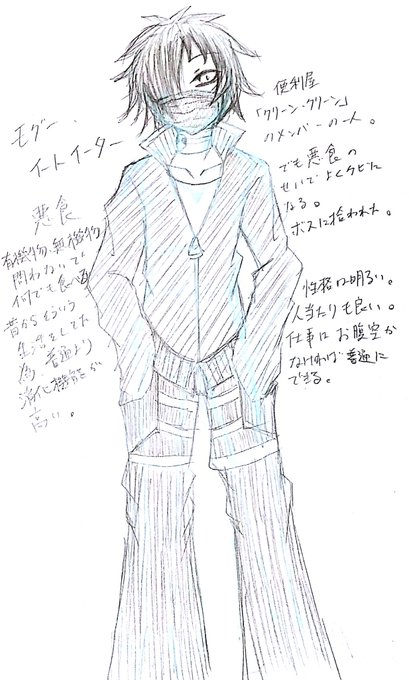 モグー・
イートイーター
悪食
有機物、無機物
問わないで
何でも食べる
昔からそういう
生活をしてた
為、普通より
消化機能が
高い。
便利屋
「クリーン・クリーン」
のメンバーの一人。
でも悪食の
せいでよくクビに
なる。
ボスに拾われた。
性格は明るい。
人当たりも良い。
仕事はお腹空か
なければ普通に
できる。